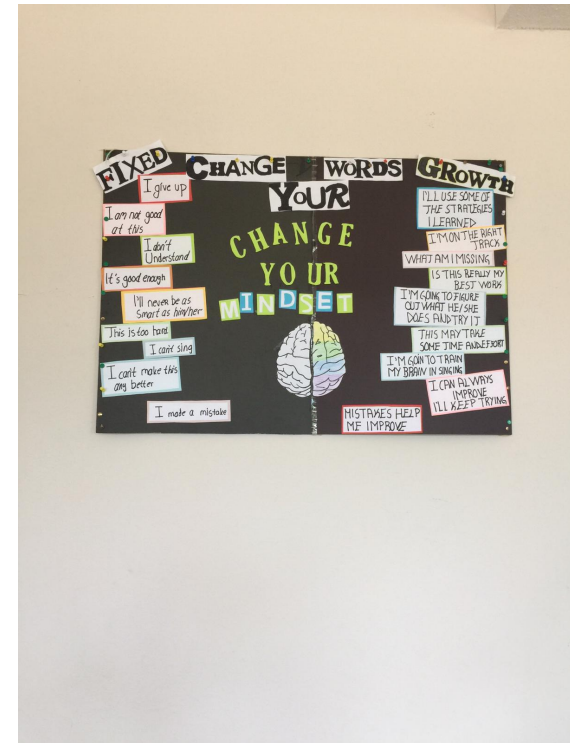 FIXED
CHANGE YOUR WORDS
GROWTH
CHANGE
YOUR
MINDSET
I give up
I am not good
at this
I don't
Understand
It's good enough
I'll never be as
Smart as him/her
This is too hard
I can't sing
I can't make this
any better
I made a mistake
I'LL USE SOME OF
THE STRATEGIES
I LEARNED
I'M ON THE RIGHT
TRACK
WHAT AM I MISSING
IS THIS REALLY MY
BEST WORK
I'M GOING TO FIGURE
OUT WHAT HE/SHE
DOES AND TRY IT
THIS MAY TAKE
SOME TIME AND EFFORT
I'M GOIN TO TRAIN
MY BRAIN IN SINGING
I CAN ALWAYS
IMPROVE
I'LL KEEP TRYING
MISTAKES HELP
ME IMPROVE